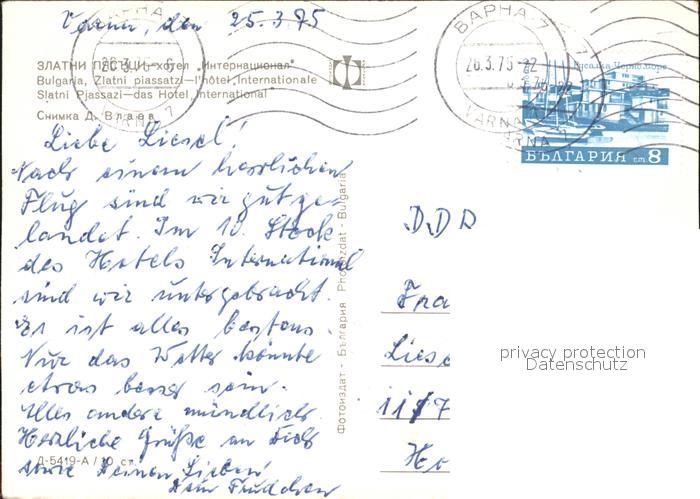 Varna, den 25.3.75
ЗЛАТНИ ПЯСЪЦИ—хотел „Интернационал"
Bulgaria, Zlatni piassatzi—l'hôtel Internationale
Slatni Pjassazi—das Hotel International
Снимка Д. Влаев
ВАРНА 7
26.3.75-22
VARNA 7
БЪЛГАРИЯ ст. 8
Liebe Liesel!
Nach einem herrlichen
Flug sind wir gut ge-
landet. Im 10. Stock
des Hotels International
sind wir untergebracht.
Es ist alles bestens.
Nur das Wetter könnte
etwas besser sein.
Alles andere mündlich.
Herzliche Grüße an Dich
sowie Deinen Lieben!
Dein Trudchen
Д-5419-А / 10 ст.
Фотоиздат - България Photoizdat - Bulgaria
DDR
Fra
Liese
117
Ho
privacy protection
Datenschutz